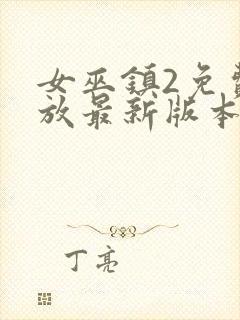 女巫镇2免费
放最新版本
丁亮